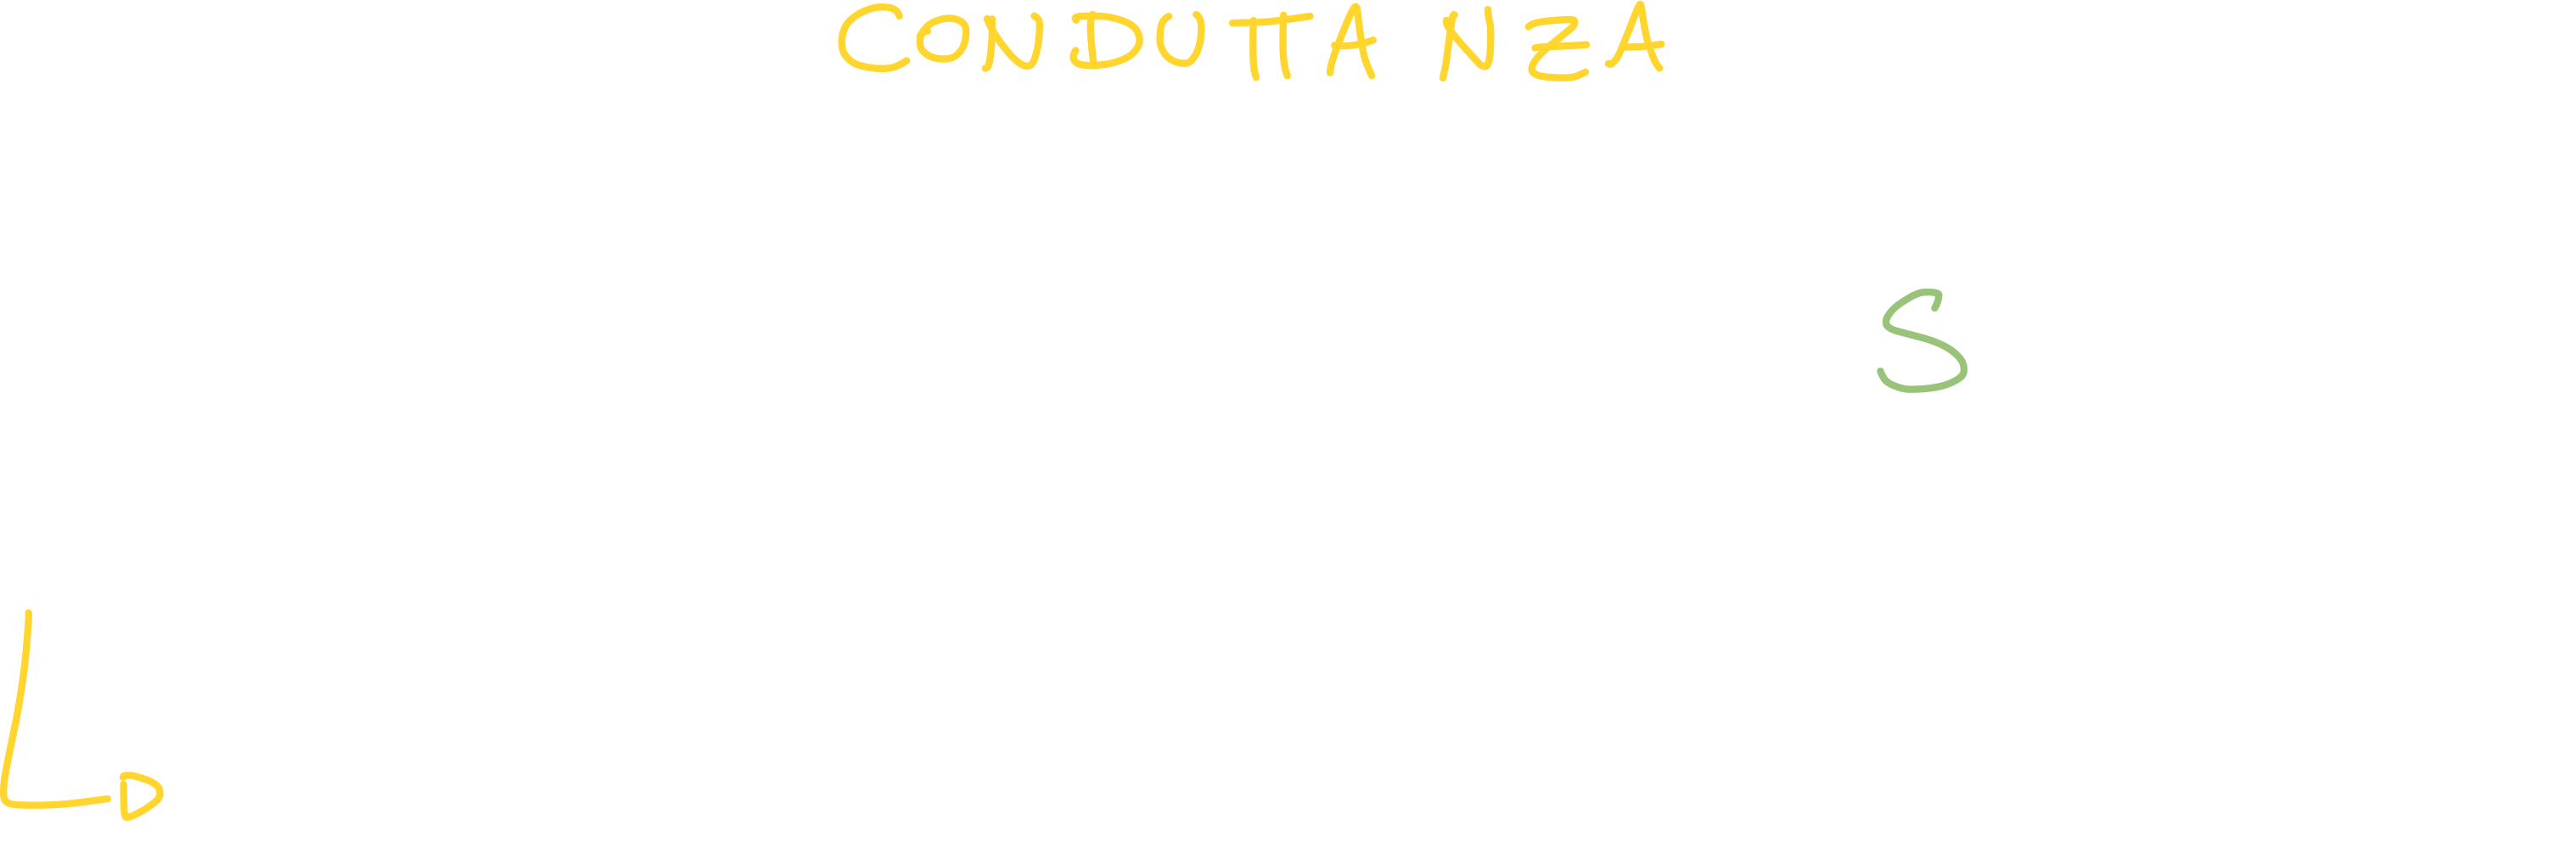 CONDUTTANZA
S